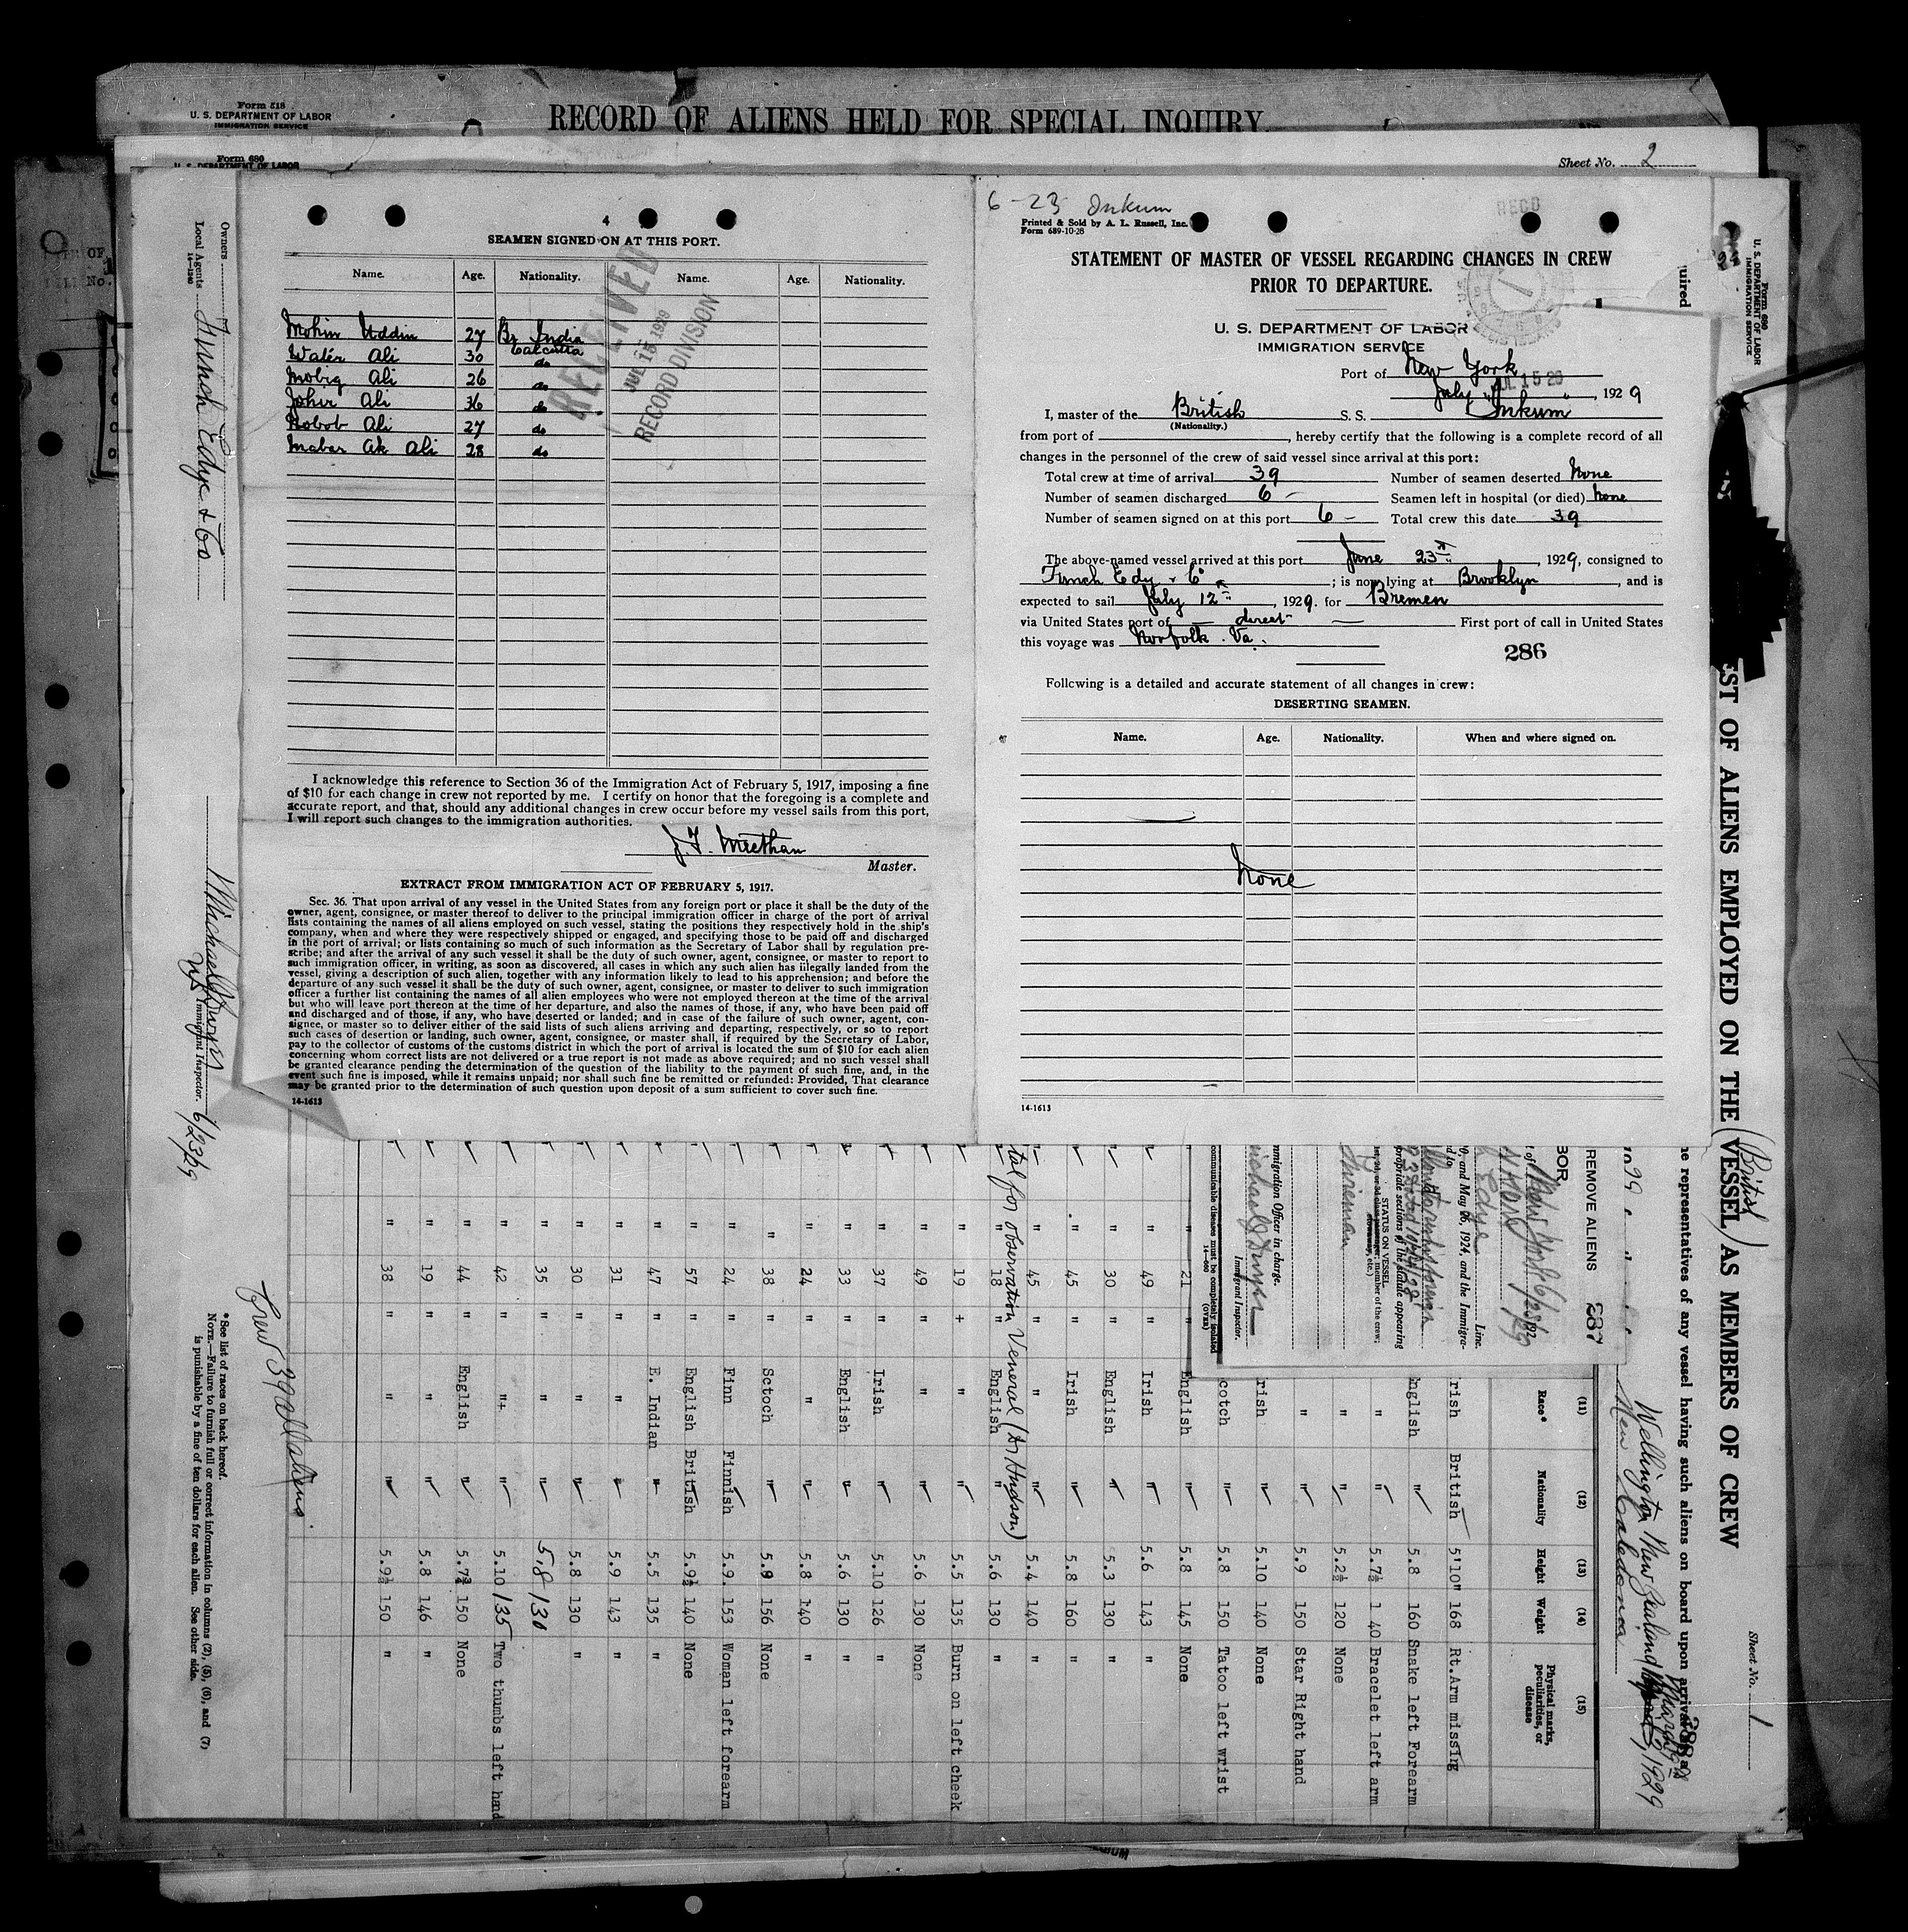 Form 518
U. S. DEPARTMENT OF LABOR
IMMIGRATION SERVICE
RECORD OF ALIENS HELD FOR SPECIAL INQUIRY
Form 680
U. S. DEPARTMENT OF LABOR
Sheet No. 2
4
SEAMEN SIGNED ON AT THIS PORT.
Name. Age. Nationality. Name. Age. Nationality.
Mohim Uddin 27 Br India
Calcutta
Water Ali 30 do
Mobig Ali 26 do
Johir Ali 36 do
Hobob Ali 27 do
Mabar Ak Ali 28 do
RECEIVED
JUL 15 1929
RECORD DIVISION
I acknowledge this reference to Section 36 of the Immigration Act of February 5, 1917, imposing a fine
of $10 for each change in crew not reported by me. I certify on honor that the foregoing is a complete and
accurate report, and that, should any additional changes in crew occur before my vessel sails from this port,
I will report such changes to the immigration authorities.
J. T. Meethan
Master.
EXTRACT FROM IMMIGRATION ACT OF FEBRUARY 5, 1917.
Sec. 36. That upon arrival of any vessel in the United States from any foreign port or place it shall be the duty of the
owner, agent, consignee, or master thereof to deliver to the principal immigration officer in charge of the port of arrival
lists containing the names of all aliens employed on such vessel, stating the positions they respectively hold in the ship's
company, when and where they were respectively shipped or engaged, and specifying those to be paid off and discharged
in the port of arrival; or lists containing so much of such information as the Secretary of Labor shall by regulation pre-
scribe; and after the arrival of any such vessel it shall be the duty of such owner, agent, consignee, or master to report to
such immigration officer, in writing, as soon as discovered, all cases in which any such alien has illegally landed from the
vessel, giving a description of such alien, together with any information likely to lead to his apprehension; and before the
departure of any such vessel it shall be the duty of such owner, agent, consignee, or master to deliver to such immigration
officer a further list containing the names of all alien employees who were not employed thereon at the time of the arrival
but who will leave port thereon at the time of her departure, and also the names of those, if any, who have been paid off
and discharged and of those, if any, who have deserted or landed; and in case of the failure of such owner, agent, con-
signee, or master so to deliver either of the said lists of such aliens arriving and departing, respectively, or so to report
such cases of desertion or landing, such owner, agent, consignee, or master shall, if required by the Secretary of Labor,
pay to the collector of customs of the customs district in which the port of arrival is located the sum of $10 for each alien
concerning whom correct lists are not delivered or a true report is not made as above required; and no such vessel shall
be granted clearance pending the determination of the question of the liability to the payment of such fine, and, in the
event such fine is imposed, while it remains unpaid; nor shall such fine be remitted or refunded: Provided, That clearance
may be granted prior to the determination of such question upon deposit of a sum sufficient to cover such fine.
14-1613
6-23 Inkum
Printed & Sold by A. L. Russell, Inc.
Form 689-10-28
RECD
STATEMENT OF MASTER OF VESSEL REGARDING CHANGES IN CREW
PRIOR TO DEPARTURE.
U. S. DEPARTMENT OF LABOR
IMMIGRATION SERVICE
Port of New York
July, 1929
I, master of the British S. S. "Inkum"
(Nationality.)
from port of , hereby certify that the following is a complete record of all
changes in the personnel of the crew of said vessel since arrival at this port:
Total crew at time of arrival 39 Number of seamen deserted None
Number of seamen discharged 6 — Seamen left in hospital (or died) None
Number of seamen signed on at this port 6 — Total crew this date 39
The above-named vessel arrived at this port June 23rd, 1929, consigned to
Funch Edy & Co ; is now lying at Brooklyn, and is
expected to sail July 12th, 1929. for Bremen
via United States port of — direct — First port of call in United States
this voyage was Norfolk. Va.
286
Following is a detailed and accurate statement of all changes in crew:
DESERTING SEAMEN.
Name. Age. Nationality. When and where signed on.
None
14-1613
Owners
Local Agents Funch Edye & Co
14-1240
Immigrant Inspector.
6/23/29
Crew 39 all aliens.
* See list of races on back hereof.
NOTE.—Failure to furnish full or correct information in columns (2), (5), (6), and (7)
is punishable by a fine of ten dollars for each alien. See other side.
Form 680
U. S. DEPARTMENT OF LABOR
IMMIGRATION SERVICE
Sheet No. 1
ST OF ALIENS EMPLOYED ON THE VESSEL AS MEMBERS OF CREW
(British)
uired
he representatives of any vessel having such aliens on board upon arrival
Wellington New Zealand
New Caledonia
REMOVE ALIENS 287
9, and May 26, 1924, and the Immigra-
propriate sections of the statute appearing
STATUS ON VESSEL
member of the crew;
Fireman
mmigration Officer in charge.
Immigrant Inspector.
communicable diseases must be completely isolated
14-660 (OVER)
(11) (12) (13) (14) (15)
Race* Nationality Height Weight Physical marks, peculiarities, or disease
rish British 5'10" 168 Rt.Arm missing
nglish " 5.8 160 Snake left Forearm
" " 5.7½ 1 40 Bracelet left arm
" " 5.2½ 120 None
" " 5.9 150 Star Right hand
rish " 5.10 140 None
cotch " 5.8 150 Tatoo left wrist
21 English " 5.8 145 None
49 " Irish " 5.6 143 "
30 " English " 5.3 130 "
45 " Irish " 5.8 160 "
45 " " " 5.4 140 "
tal for observation Veneral (Dr Hudson)
18 " English " 5.6 130 "
19 + " " 5.5 135 Burn on left cheek
49 " " " 5.6 130 None
37 " Irish " 5.10 126 "
33 " English " 5.6 130 "
24 " " " 5.8 140 "
38 " Sctoch " 5.9 156 None
24 " Finn Finnish 5.9. 153 Woman left forearm
57 " English British 5.9½ 140 None
47 " E. Indian " 5.5 135 "
31 " " " 5.9 143 "
30 " " " 5.8 130 "
35 " " " 5.8 130
42 " " " 5.10 135 Two thumbs left hand
44 " English " 5.7¾ 150 None
19 " " " 5.8 146 "
38 " " " 5.9½ 150 "